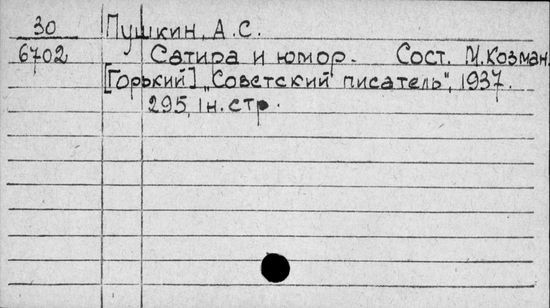 30 Пушкин, А.С.
6702 Сатира и юмор. Сост. М.Козман.
[Горький] „Советский писатель", 1937.
295, 1н. стр.